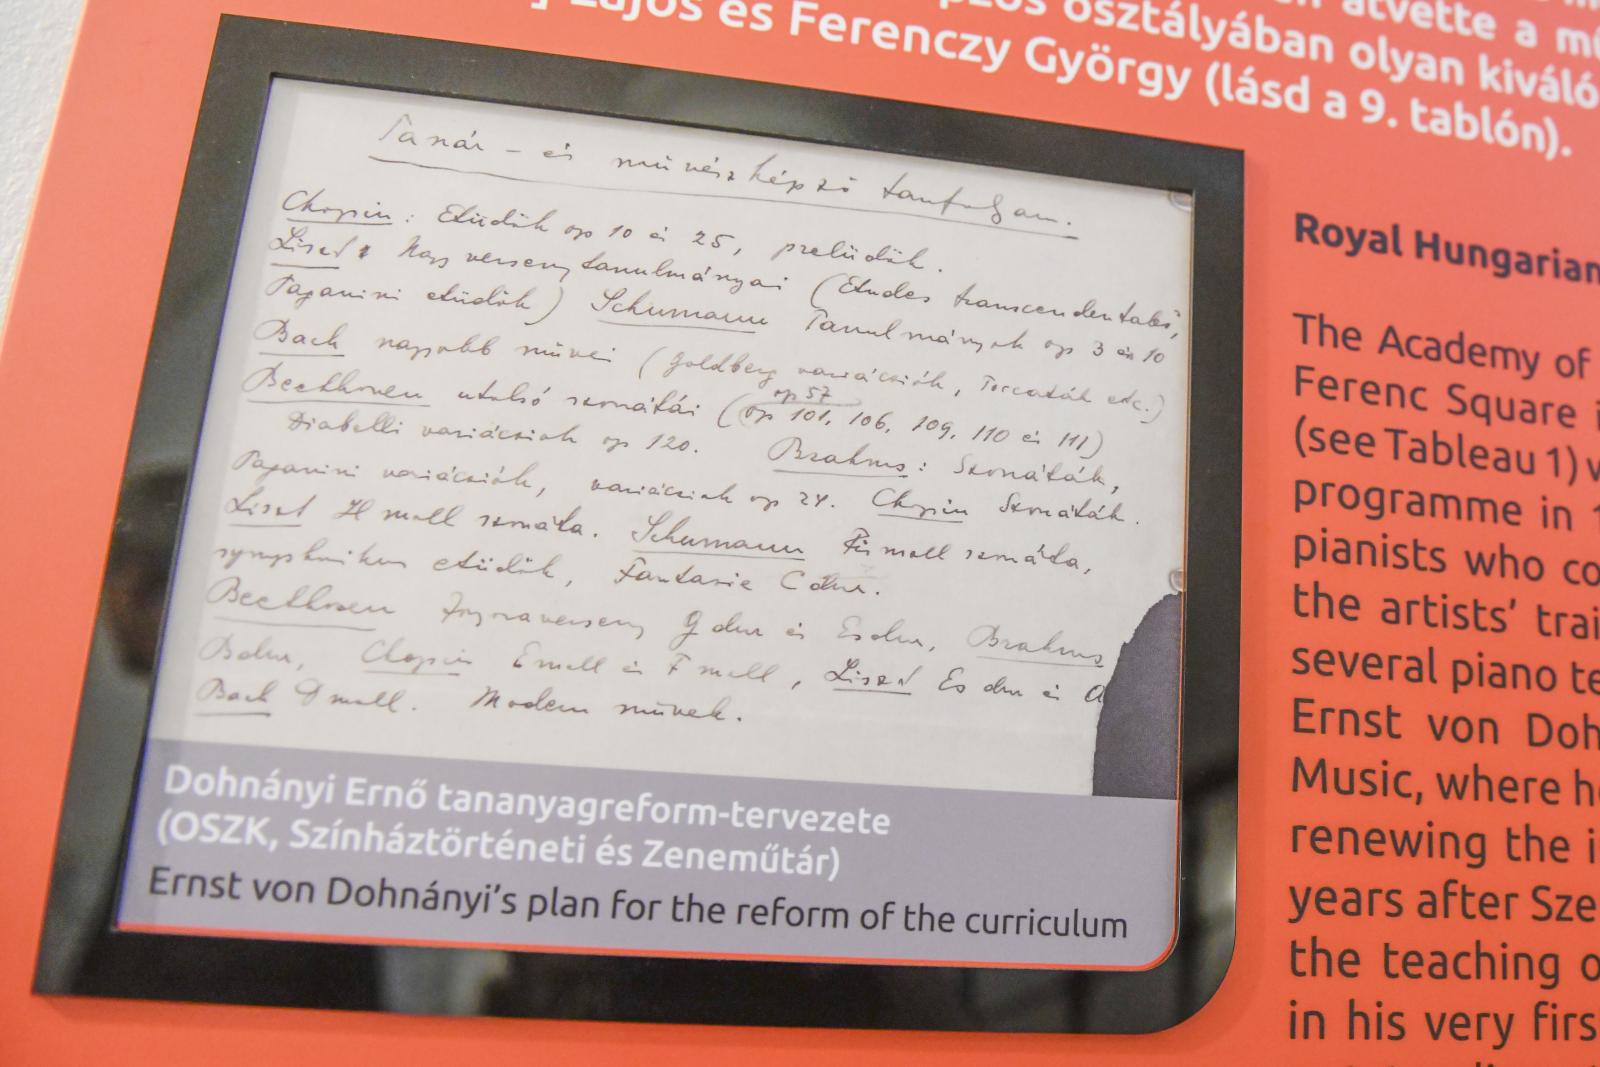 Lajos és Ferenczy György (lásd a 9. tablón).
osztályában olyan kiváló
átvette a
Tanár- és művészképző tanfolyam.
Chopin: Etüdök op 10 és 25, prelüdök.
Liszt: Nagy versenytanulmányai (Etudes transcendentales,
Paganini etüdök) Schumann Tanulmányok op 3 és 10
Bach nagyobb művei (Goldberg variációk, Toccaták etc.)
op 57
Beethoven utolsó szonátái (op 101, 106, 109, 110 és 111)
Diabelli variációk op 120. Brahms: Szonáták,
Paganini variációk, variációk op 24. Chopin Szonáták.
Liszt H moll szonáta. Schumann Fis moll szonáta,
symphonikus etüdök, Fantasie C dur.
Beethoven Zongoraverseny G dur és Es dur, Brahms
B dur, Chopin E moll és F moll, Liszt Es dur és A
Bach D moll. Modern művek.
Dohnányi Ernő tananyagreform-tervezete
(OSZK, Színháztörténeti és Zeneműtár)
Ernst von Dohnányi's plan for the reform of the curriculum
Royal Hungarian
The Academy of
Ferenc Square
(see Tableau 1)
programme in
pianists who
the artists'
several piano
Ernst von
Music, where
renewing the
years after
the teaching
in his very